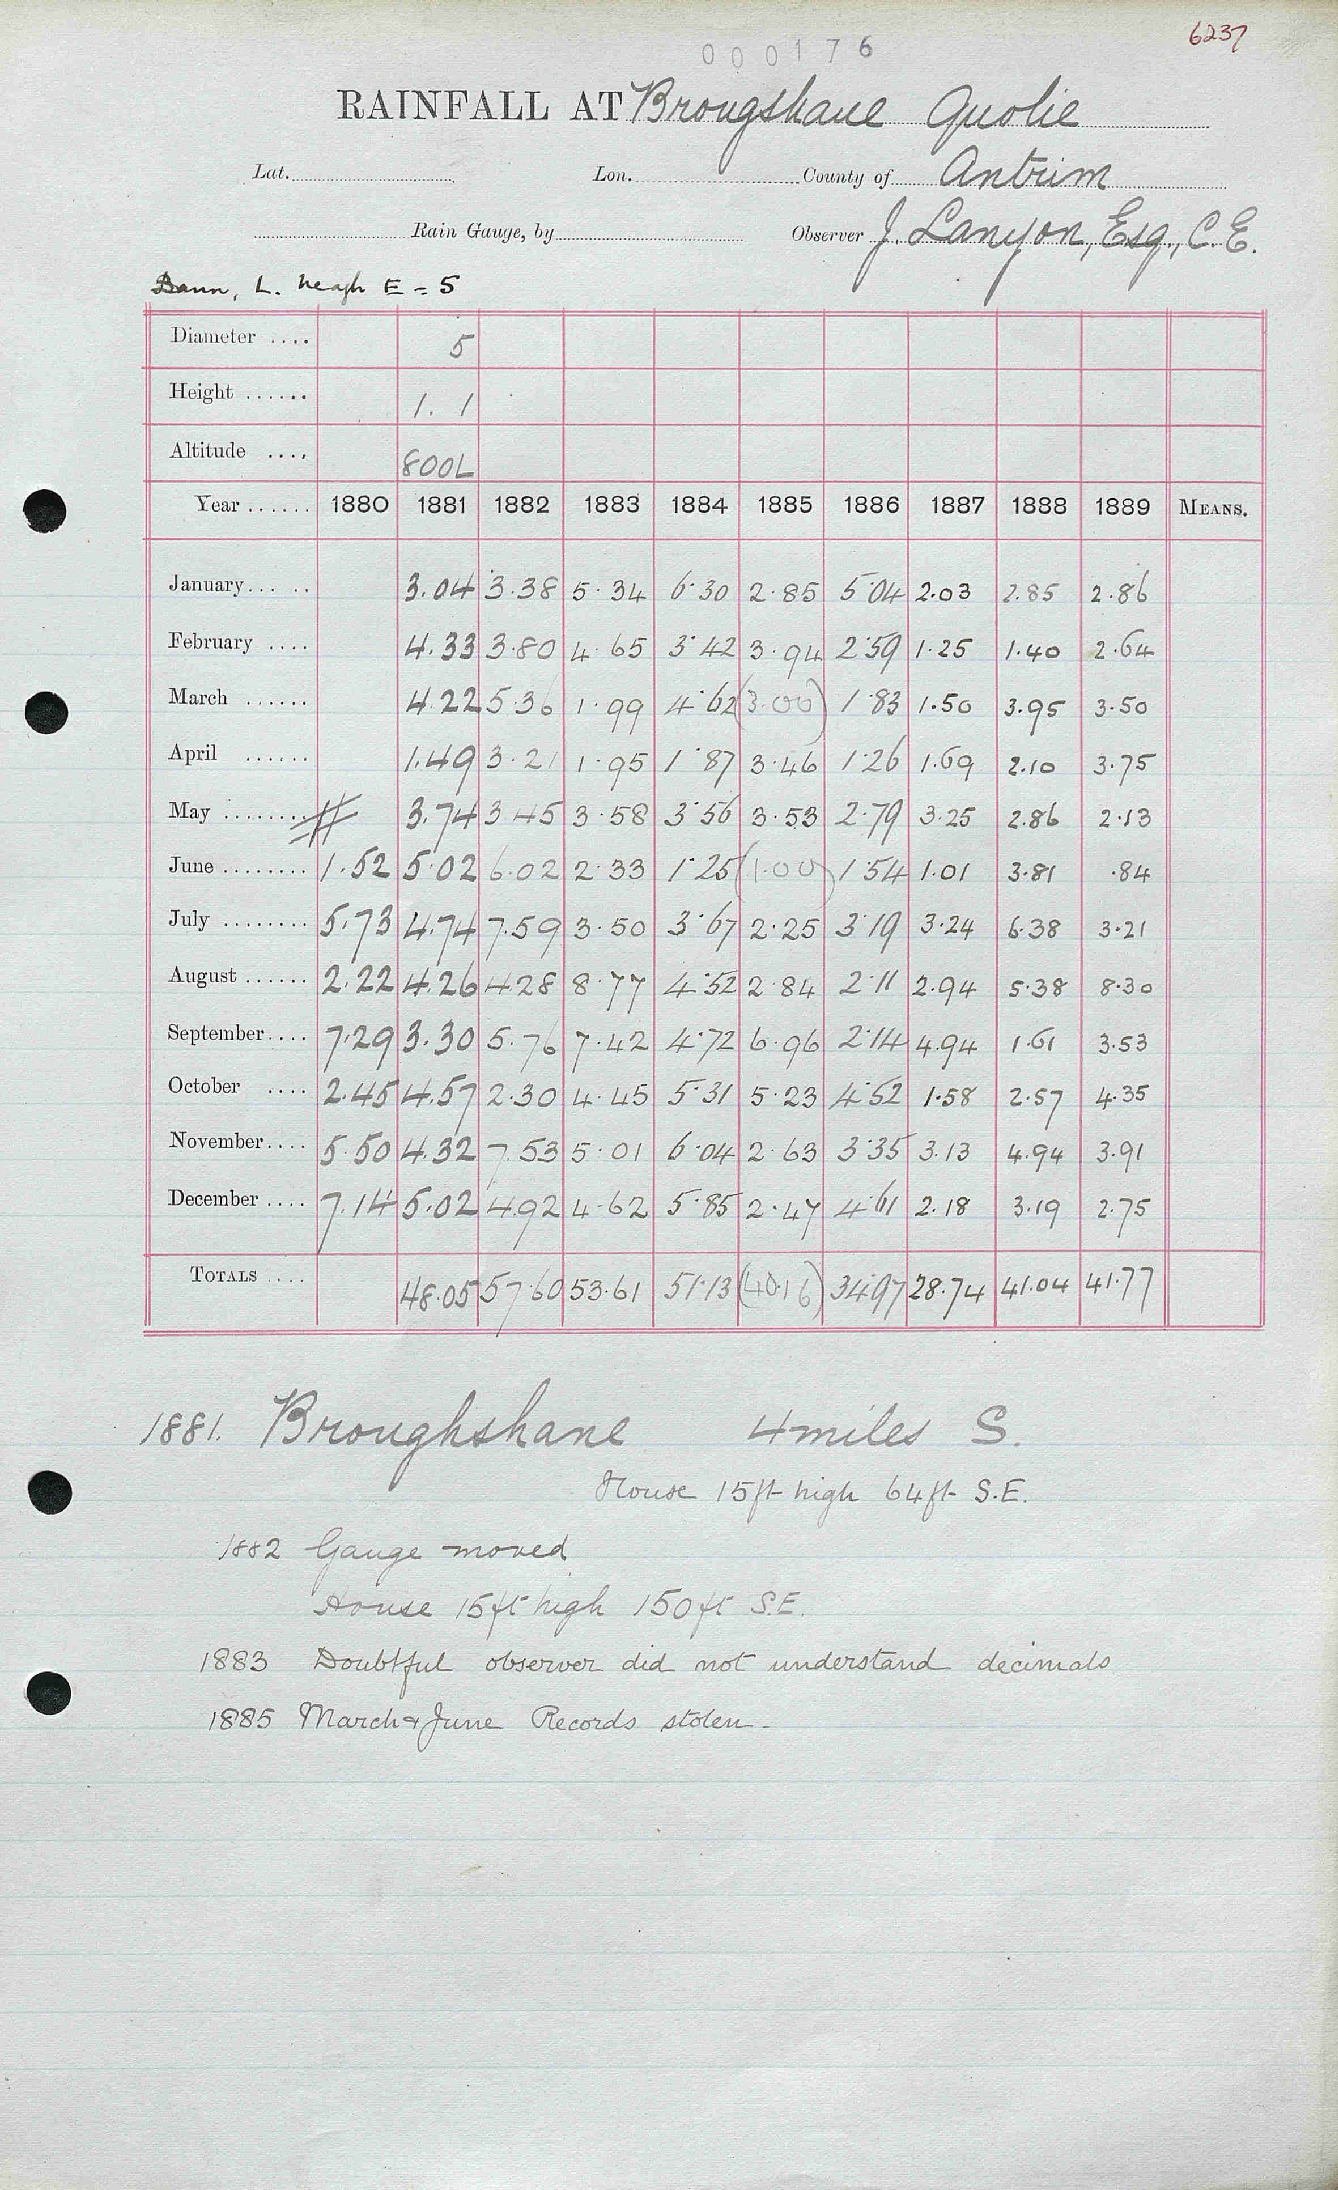 6237
000176
RAINFALL AT Brougshane Quolie
Lat. Lon. County of Antrim
Rain Gauge, by Observer J. Lanyon, Esq., C.E.
Bann, L. Neagh E = 5
Diameter .... 5
Height ...... 1. 1
Altitude .... 800L
Year ...... 1880 1881 1882 1883 1884 1885 1886 1887 1888 1889 MEANS.
January ... .. 3.04 3.38 5.34 6.30 2.85 5.04 2.03 2.85 2.86
February .... 4.33 3.80 4.65 3.42 3.94 2.59 1.25 1.40 2.64
March ...... 4.22 5.36 1.99 4.62 (3.00) 1.83 1.50 3.95 3.50
April ...... 1.49 3.21 1.95 1.87 3.46 1.26 1.69 2.10 3.75
May ........ # 3.74 3.45 3.58 3.56 3.53 2.79 3.25 2.86 2.13
June ........ 1.52 5.02 6.02 2.33 1.25 (1.00) 1.54 1.01 3.81 .84
July ........ 5.73 4.74 7.59 3.50 3.67 2.25 3.19 3.24 6.38 3.21
August ...... 2.22 4.26 4.28 8.77 4.52 2.84 2.11 2.94 5.38 8.30
September .... 7.29 3.30 5.76 7.42 4.72 6.96 2.14 4.94 1.61 3.53
October .... 2.45 4.57 2.30 4.45 5.31 5.23 4.52 1.58 2.57 4.35
November .... 5.50 4.32 7.53 5.01 6.04 2.63 3.35 3.13 4.94 3.91
December .... 7.14 5.02 4.92 4.62 5.85 2.47 4.61 2.18 3.19 2.75
TOTALS .... 48.05 57.60 53.61 51.13 (40.16) 34.97 28.74 41.04 41.77
1881. Broughshane 4 miles S.
House 15ft high 64ft S.E.
1882 Gauge moved
House 15ft high 150ft S.E.
1883 Doubtful observer did not understand decimals
1885 March & June Records stolen -